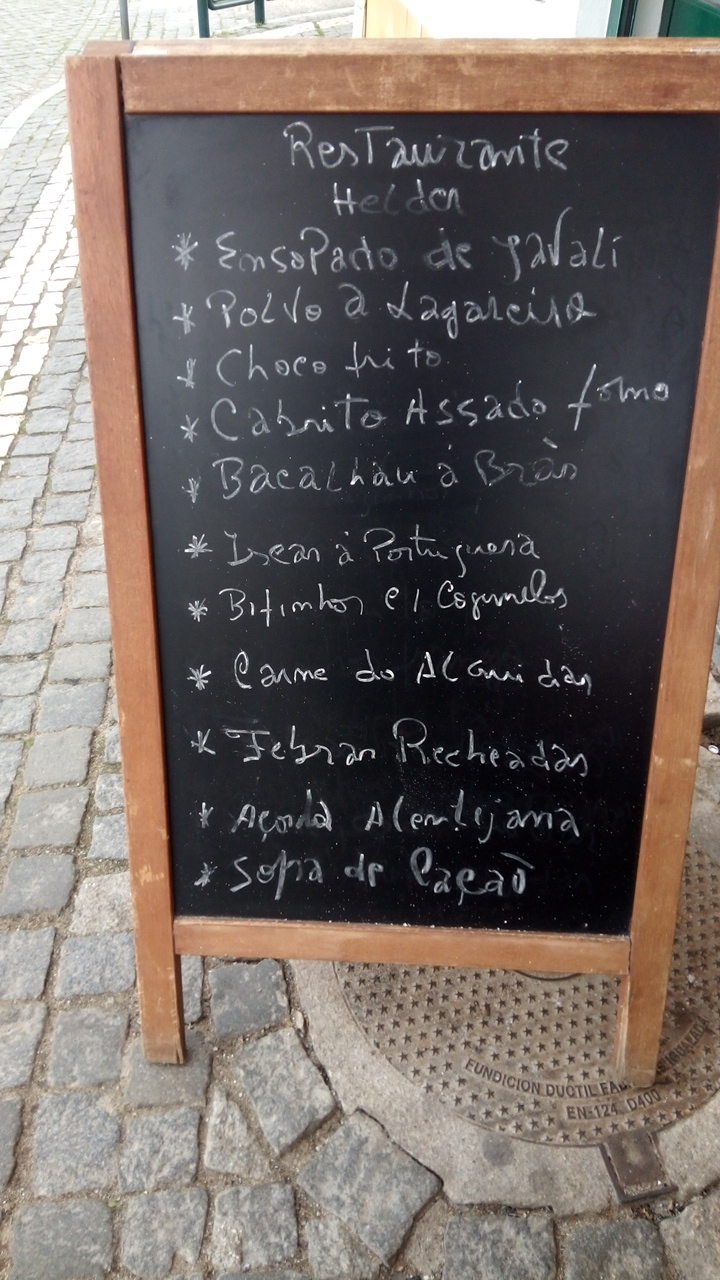 Restaurante
Helder
* Ensopado de Javali
* Polvo à Lagareiro
* Choco frito
* Cabrito Assado forno
* Bacalhau à Bràs
* Iscas à Portuguesa
* Bifinhos c/ Cogumelos
* Carne do Alguidar
* Febras Recheadas
* Açorda Alentejana
* Sopa de Cação
FUNDICION DUCTIL
EN-124 D400